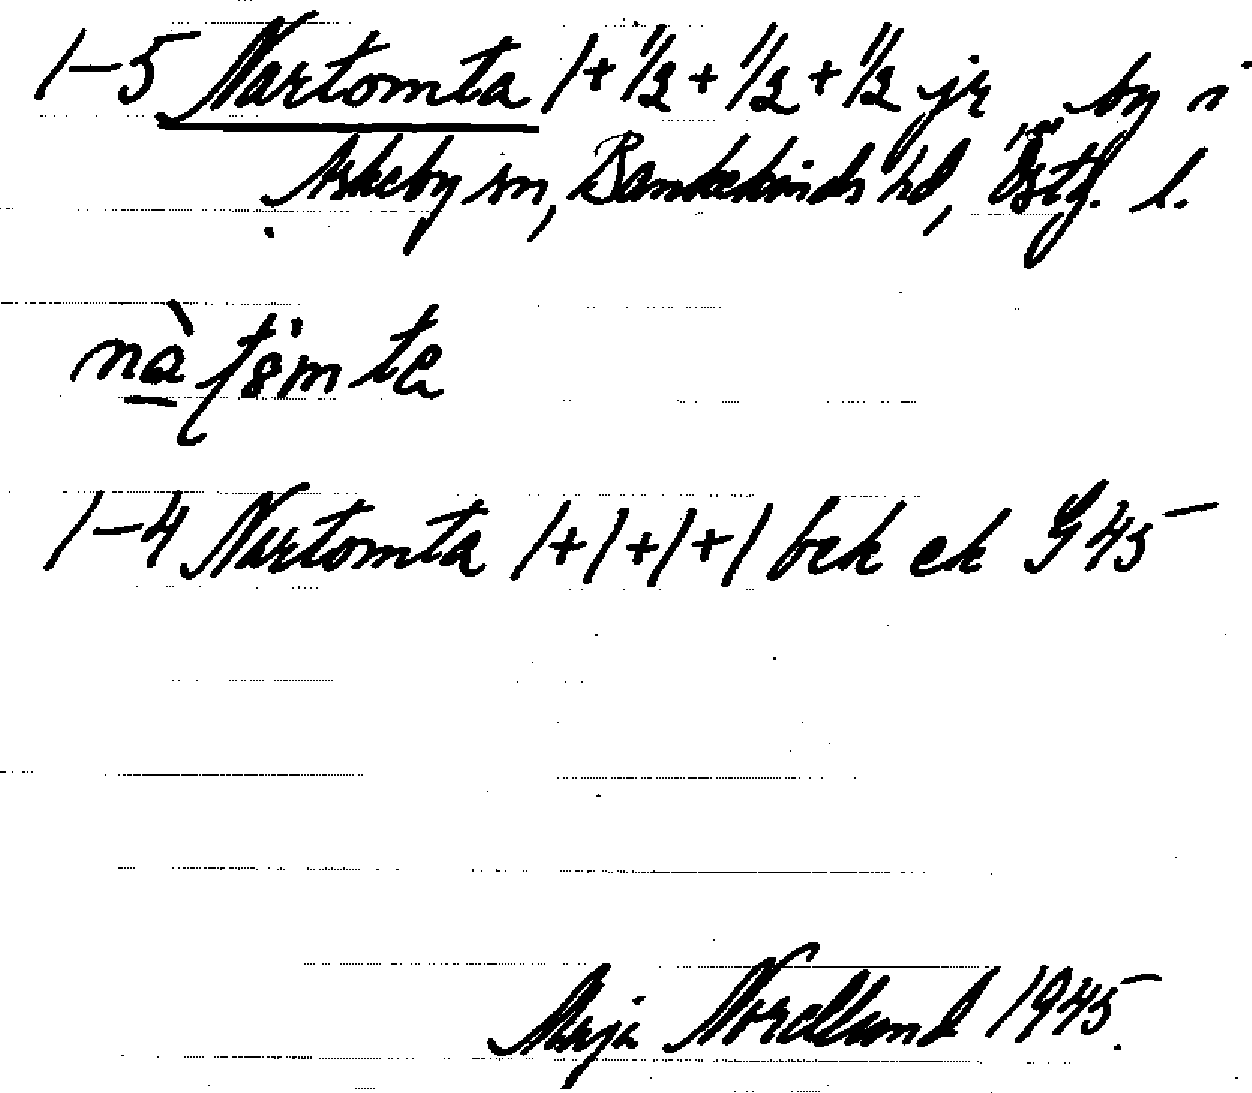 1-5 Nartomta 1+1/2+1/2+1/2 jr by i
Askeby sn, Bankekinds hd, Östg. l.
1-4 Nartomta 1+1+1+1 bek ek G 45
Maja Nordlund 1945.